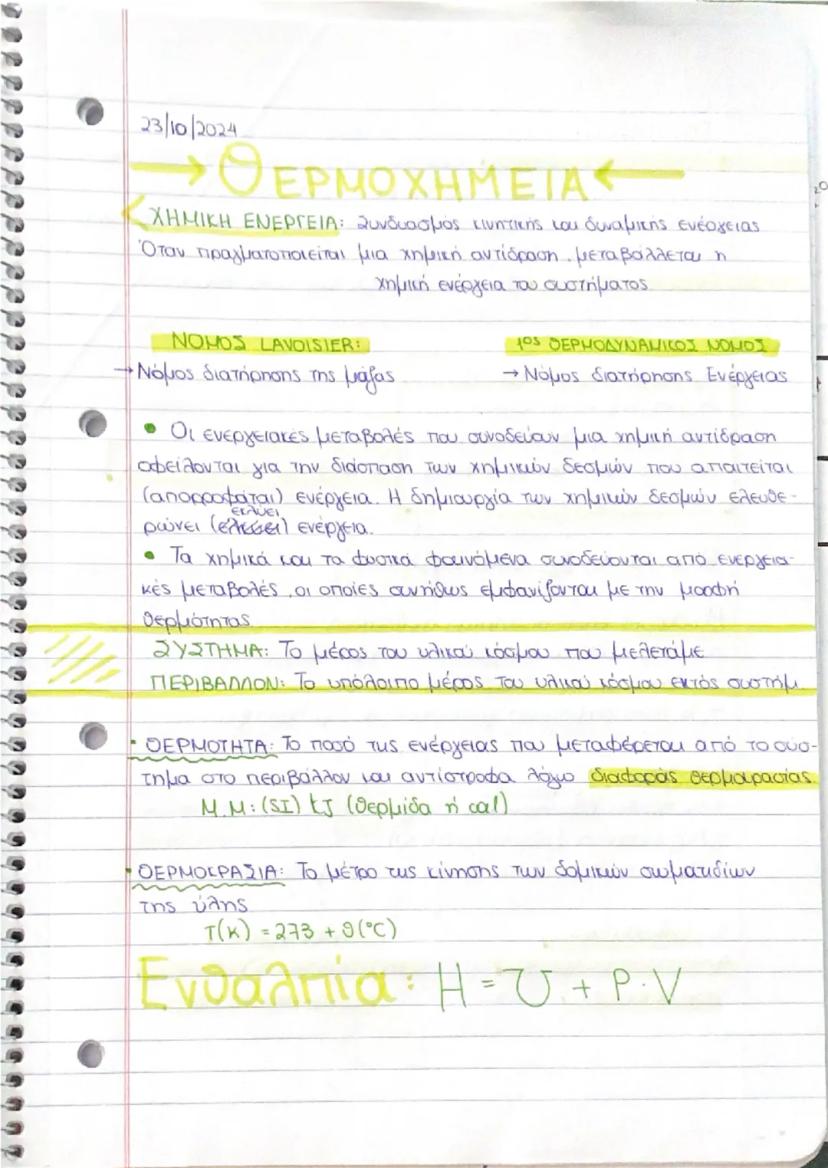 23/10/2024
→ ΘΕΡΜΟΧΗΜΕΙΑ ←
ΧΗΜΙΚΗ ΕΝΕΡΓΕΙΑ: Συνδιασμός κινητικής και δυναμικής ενέργειας
Όταν πραγματοποιείται μια χημική αντίδραση, μεταβάλλεται η
χημική ενέργεια του συστήματος
ΝΟΜΟΣ LAVOISIER: 1ος ΘΕΡΜΟΔΥΝΑΜΙΚΟΣ ΝΟΜΟΣ
→ Νόμος διατήρησης της μάζας → Νόμος διατήρησης Ενέργειας
• Οι ενεργειακές μεταβολές που συνοδεύουν μια χημική αντίδραση
οφείλονται για την διάσπαση των χημικών δεσμών που απαιτείται
(απορροφάται) ενέργεια. Η δημιουργία των χημικών δεσμών ελευθε-
ρώνει (εκλύει) ενέργεια.
• Τα χημικά και τα φυσικά φαινόμενα συνοδεύονται από ενεργεια-
κές μεταβολές, οι οποίες συνήθως εμφανίζονται με την μορφή
θερμότητας
ΣΥΣΤΗΜΑ: Το μέρος του υλικού κόσμου που μελετάμε
ΠΕΡΙΒΑΛΛΟΝ: Το υπόλοιπο μέρος του υλικού κόσμου εκτός συστήμ.
• ΘΕΡΜΟΤΗΤΑ: Το ποσό της ενέργειας που μεταφέρεται από το σύσ-
τημα στο περιβάλλον και αντίστροφα λόγο διαφοράς θερμοκρασίας
Μ.Μ: (SI) kJ (θερμίδα ή cal)
• ΘΕΡΜΟΚΡΑΣΙΑ: Το μέτρο της κίνησης των δομικών σωματιδίων
της ύλης
T(K) = 273 + θ(°C)
Ενθαλπία: H = U + P · V